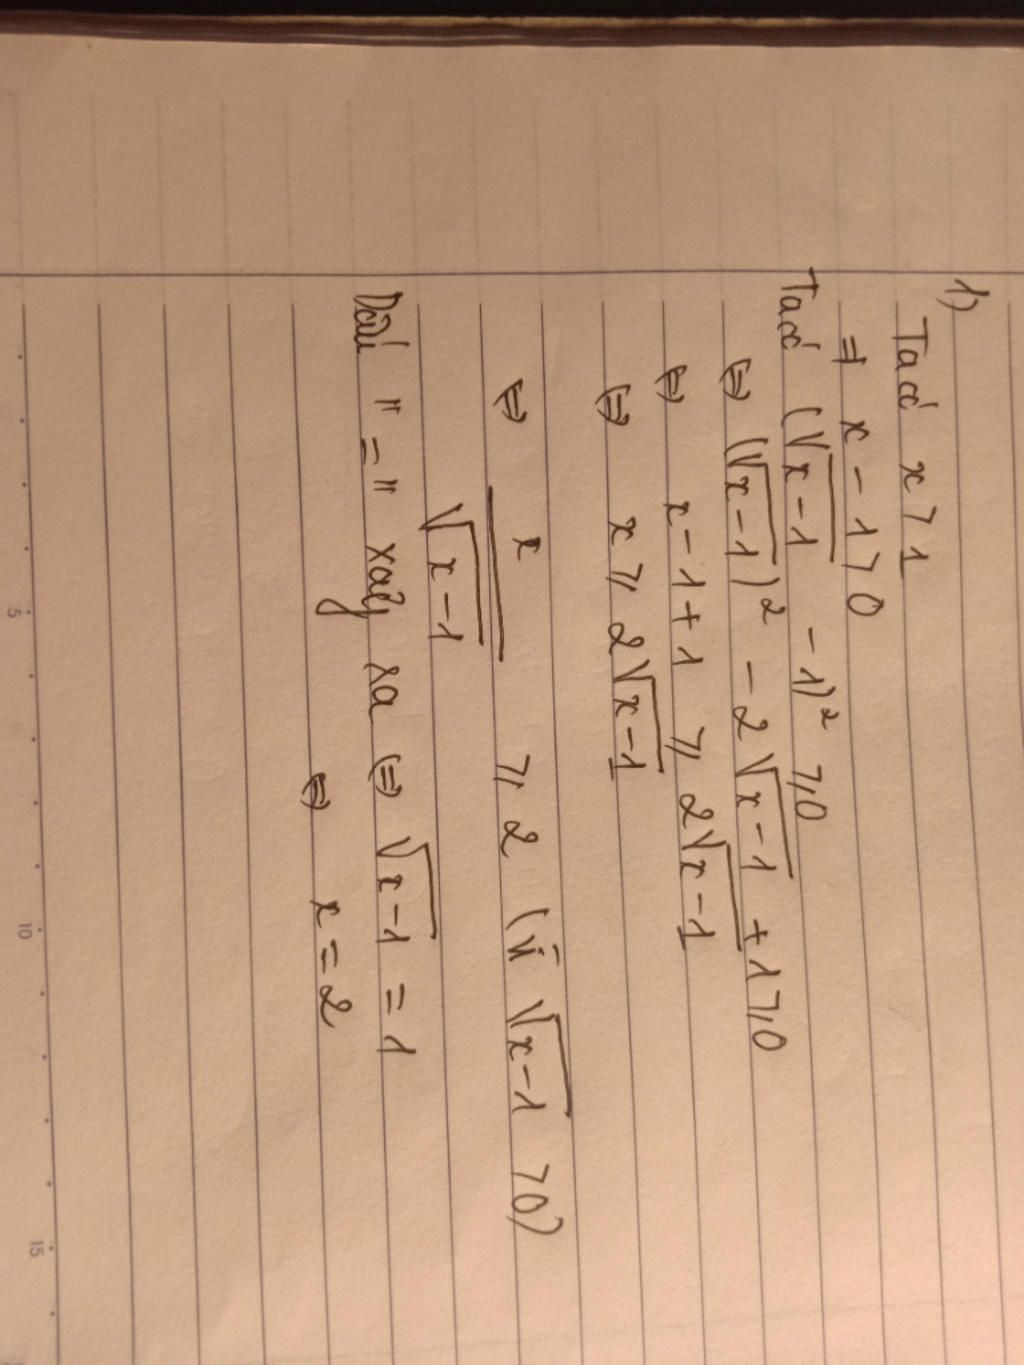 1)
Ta có x > 1
⇒ x - 1 > 0
Ta có (√x-1 - 1)² ≥ 0
⇔ (√x-1)² - 2√x-1 + 1 ≥ 0
⇔ x - 1 + 1 ≥ 2√x-1
⇔ x ≥ 2√x-1
⇔ x/√x-1 ≥ 2 (vì √x-1 > 0)
Dấu "=" xảy ra ⇔ √x-1 = 1
⇔ x = 2
5
10
15